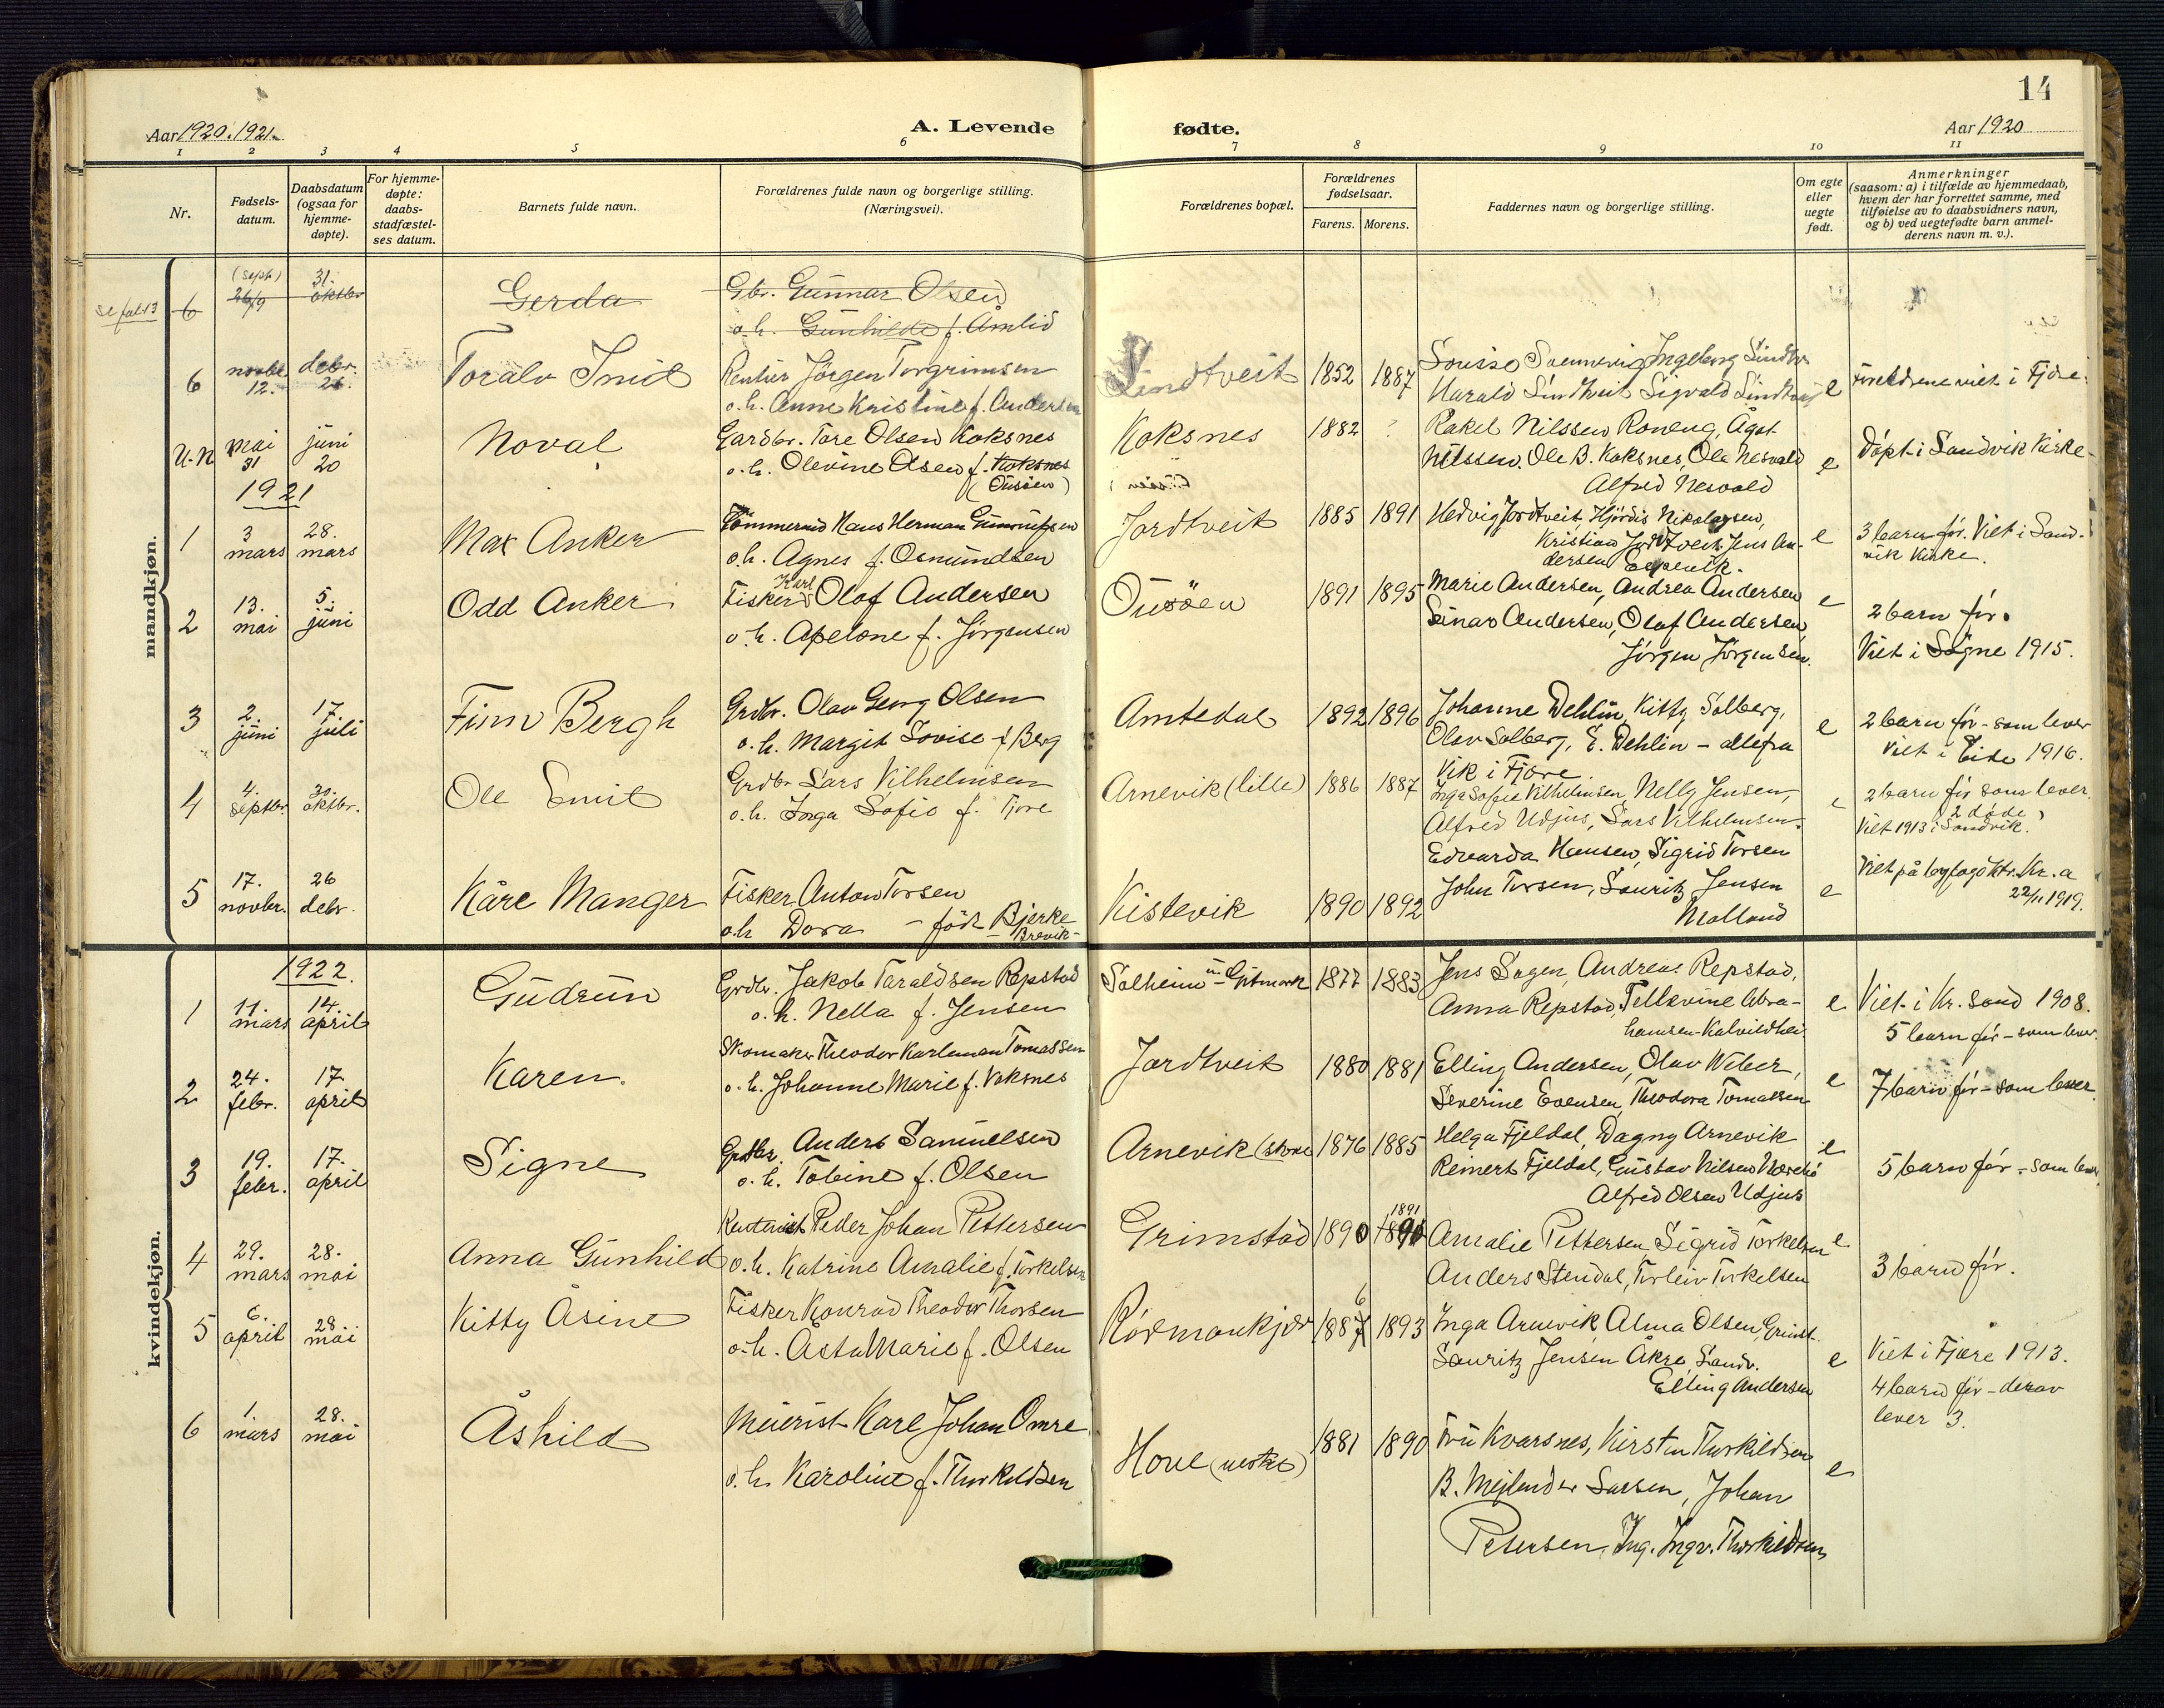 14
Aar 1920. 1921.
A. Levende
fødte.
Aar 1920
1 2 3 4 5 6 7 8 9 10 11
Nr.
Fødsels-
datum.
Daabsdatum
(ogsaa for
hjemme-
døpte).
For hjemme-
døpte:
daabs-
stadfæstel-
ses datum.
Barnets fulde navn.
Forældrenes fulde navn og borgerlige stilling.
(Næringsvei).
Forældrenes bopæl.
Forældrenes
fødselsaar.
Farens. Morens.
Faddernes navn og borgerlige stilling.
Om egte
eller
uegte
født.
Anmerkninger
(saasom: a) i tilfælde av hjemmedaab,
hvem der har forrettet samme, med
tilføielse av to daabsvidners navn,
og b) ved uegtefødte barn anmel-
derens navn m. v.).
mandkjøn.
se fol 13
6 (sept) 26/9 31. oktbr Gerda
Gbr. Gunnar Olsen
o. h. Gunhilde f. Åmlid
6 novbr. 12. debr. 26. Toralv Smil
Rentier Jörgen Torgrimsen
o. h. Anne Kristine f. Andersen
Lindtveit 1852 1887
Ingeborg Lindtv.
Harald Lindtveit Sigvald Lindtveit
e
Foreldrene viet i Fjære.
U-N mai 31 juni 20 Noval
Gardbr. Tore Olsen Koksnes
o. h. Olevine Olsen f. Koksnes
(Ousöen)
Koksnes 1882 ?
Rakel Nilssen Roneng, Ågot
Nilssen, Ole B. Koksnes, Ola Nesvald
Alfred Nesvold
e
Döpt i Sandvik Kirke
1921
1 3 mars 28. mars Max Anker
Tömmermd Hans Herman
o. h. Agnes f. Osmundsen
Jordtveit 1885 1891
Hedvig Jordtveit, Hjördis Nikolaysen,
Kristian Jordtveit, Jens An-
dersen
e
3 barn för. Viet i Sand-
vik Kirke.
2 13. mai 5. juni Odd Anker
Fisker Karl Olaf Andersen
o. h. Apelone f. Jörgensen
Ousöen 1891 1895
Marie Andersen, Andrea Andersen
Einar Andersen, Olaf Andersen,
Jörgen Jörgensen.
e
2 barn för.
Viet i Sögne 1915.
3 2. juni 17. juli Finn Bergh
Grdbr. Olav Georg Olsen
o. h. Margit Lovise f. Berg
Amtedal 1892 1896
Johanne Dehlin, Kitty Solberg,
Olav Solberg, E. Dehlin - alle fra
Vik i Fjære.
e
2 barn för - som lever
Viet i Eide 1916.
4 4. septbr. 30. oktbr. Ole Emil
Grdbr Lars Vilhelmsen
o. h. Inga Sofie f. Fjære
Arnevik (lille) 1886 1887
Inga Sofie Vilhelmsen Nelly Jensen,
Alfred Udjus, Lars Vilhelmsen.
e
2 barn för som lever.
2 döde
Viet 1913 i Sandvik.
5 17. novbr. 26 debr. Kåre Manger
Fisker Anton Torsen
o. h. Dora - född Bjerke
Brevik -
Kistevik 1890 1892
Edvarda Hansen, Sigrid Torsen
John Torsen, Lauritz Jensen
Molland
e
Viet på byfogdktr. Kr.a
22/11 1919.
kvindekjøn.
1922.
1 11. mars 14. april Gudrun
Grdbr. Jakob Taraldsen Repstad
o. h. Nella f. Jensen
Solheim u. Gitmark 1877 1883
Jens Sagen, Andreas Repstad,
Anna Repstad, Tellevine Abra-
hamsen-Kalvildhei.
e
Viet i Kr. sand 1908.
5 barn för - som lever.
2 24. febr. 17. april Karen.
Skomaker Theodor Karleman Tomassen
o. h. Johanne Marie f. Voksnes
Jordtveit 1880 1881
Elling Andersen, Olav Weber,
Severine Evensen, Theodora Tomassen
e
7 barn för - som lever.
3 19. febr. 17. april Signe
Grdbr. Anders Samuelsen
o. h. Tobine f. Olsen
Arnevik (store 1876 1885
Helga Fjeldal, Dagny Arnevik
Reinert Fjeldal, Gustav Nilsen
Alfred Olsen Udjus
e
5 barn för - som lever
4 29. mars 28. mai Anna Gunhild
Peder Johan Pettersen
o. h. Katrine Amalie f. Torkelsen
Grimstad 1890 1891
Amalie Pettersen, Sigrid Torkelsen
Anders Stendal, Torleiv Torkelsen
e
3 barn för.
5 6. april 28. mai Kitty Åsine
Fisker Konrad Theodor Thorsen
o. h. Åsta Marie f. Olsen
Rörmonkjær 1886 1893
Inga Arnevik, Alma Olsen, Grimst.
Lauritz Jensen Åkre, Landv.
Elling Andersen
e
Viet i Fjære 1913.
4 barn för - derav
lever 3.
6 1. mars 28. mai Åshild
Meierist Karl Johan Omre
o. h. Karoline f. Thorkildsen
Hove (vestre) 1881 1890
Fru Kvarsnes, Kirsten Thorkildsen
B. Mejlender Larsen, Johan
Petersen, Ing. Ingv. Thorkildsen
e